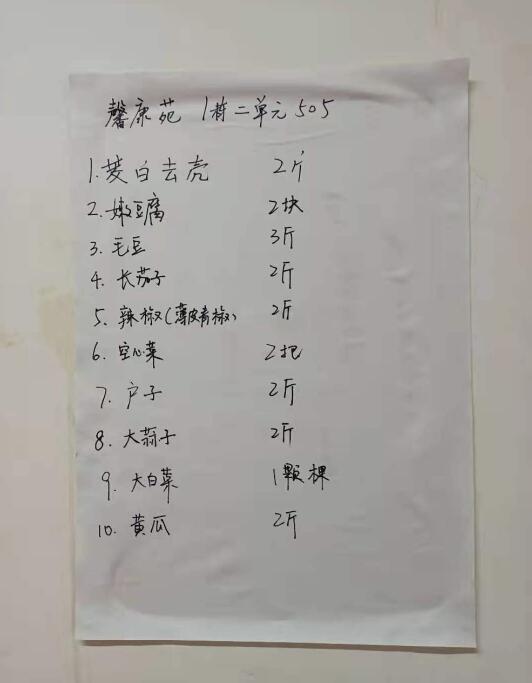 馨康苑 1栋二单元505
1. 茭白去壳 2斤
2. 嫩豆腐 2块
3. 毛豆 3斤
4. 长茄子 2斤
5. 辣椒(薄皮青椒) 2斤
6. 空心菜 2把
7. 户子 2斤
8. 大蒜子 2斤
9. 大白菜 1颗棵
10. 黄瓜 2斤